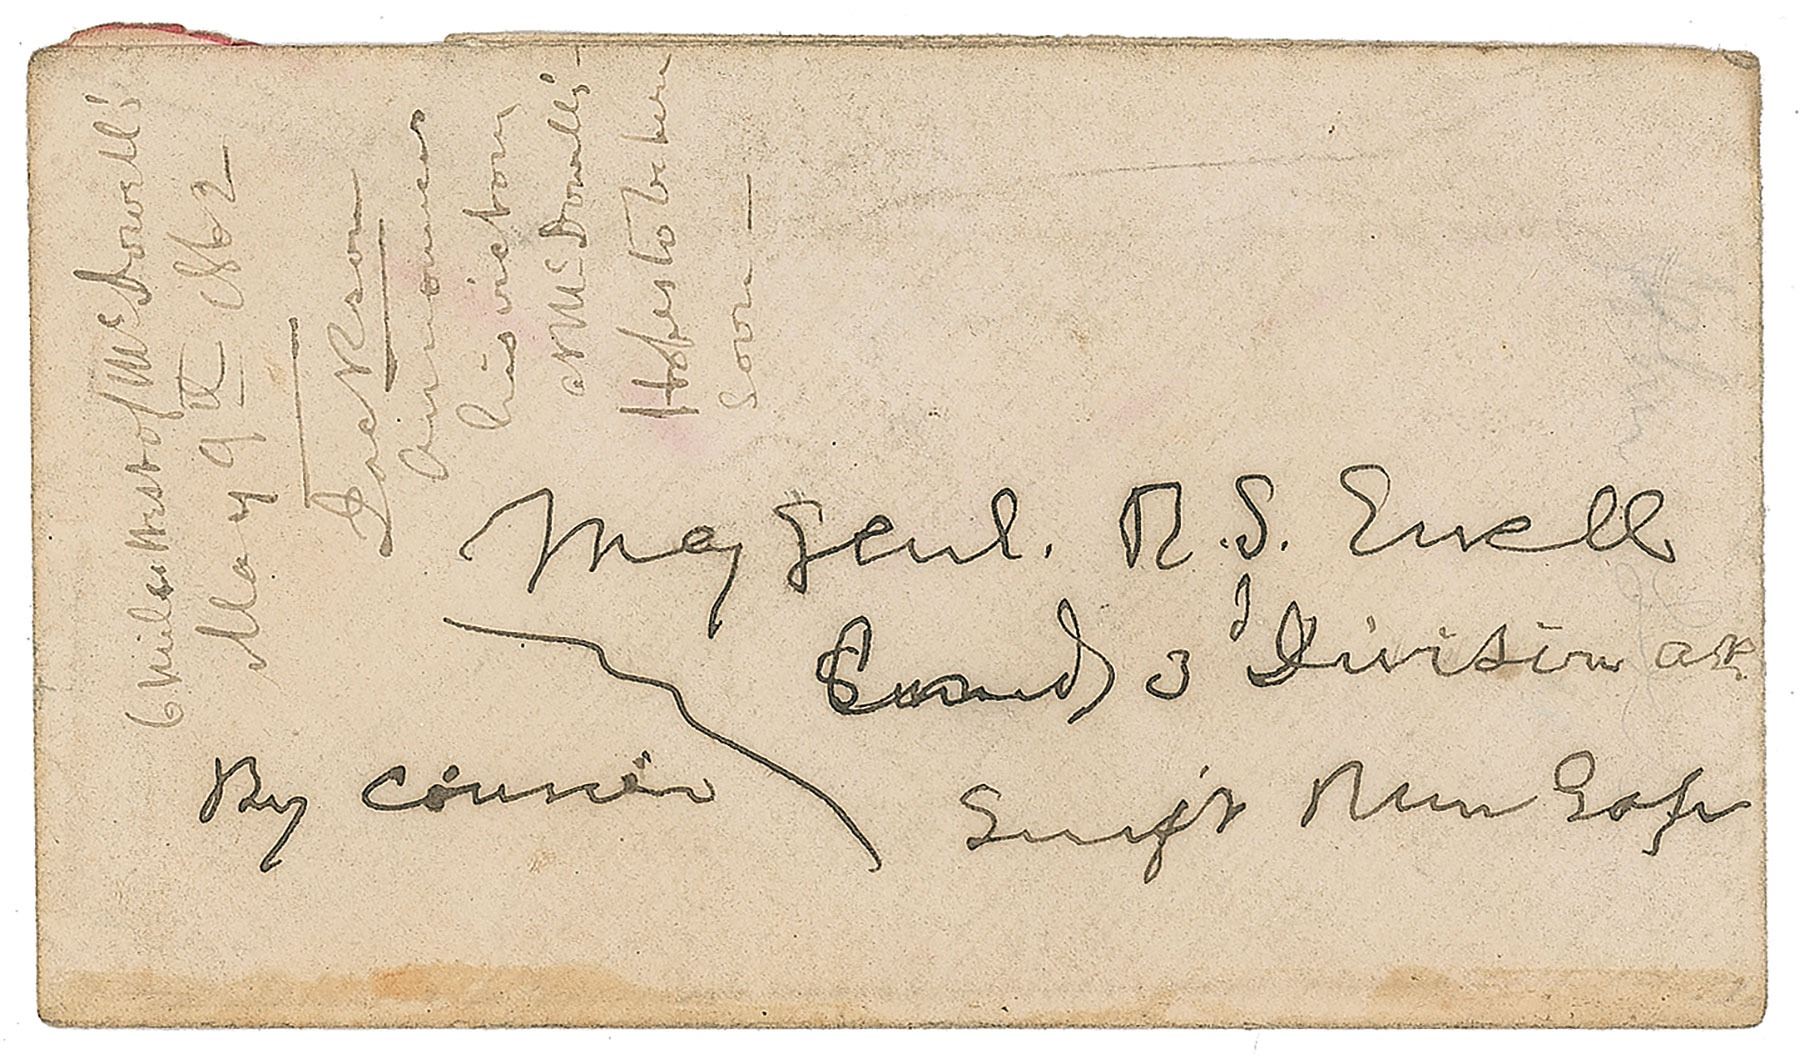 6 miles West of McDowell's
May 9th 1862
Jackson
announces
his victory
at McDowell's -
Hopes to be here
soon -
Maj Genl. R. S. Ewell
Comdg 3d Division at
Swift Run Gap
By courier